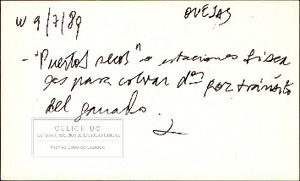 W 9/7/89
OVEJAS
- "Puertos secos" o estaciones fisca
les para cobrar d^os por tránsito
del ganado.
CELICH UC